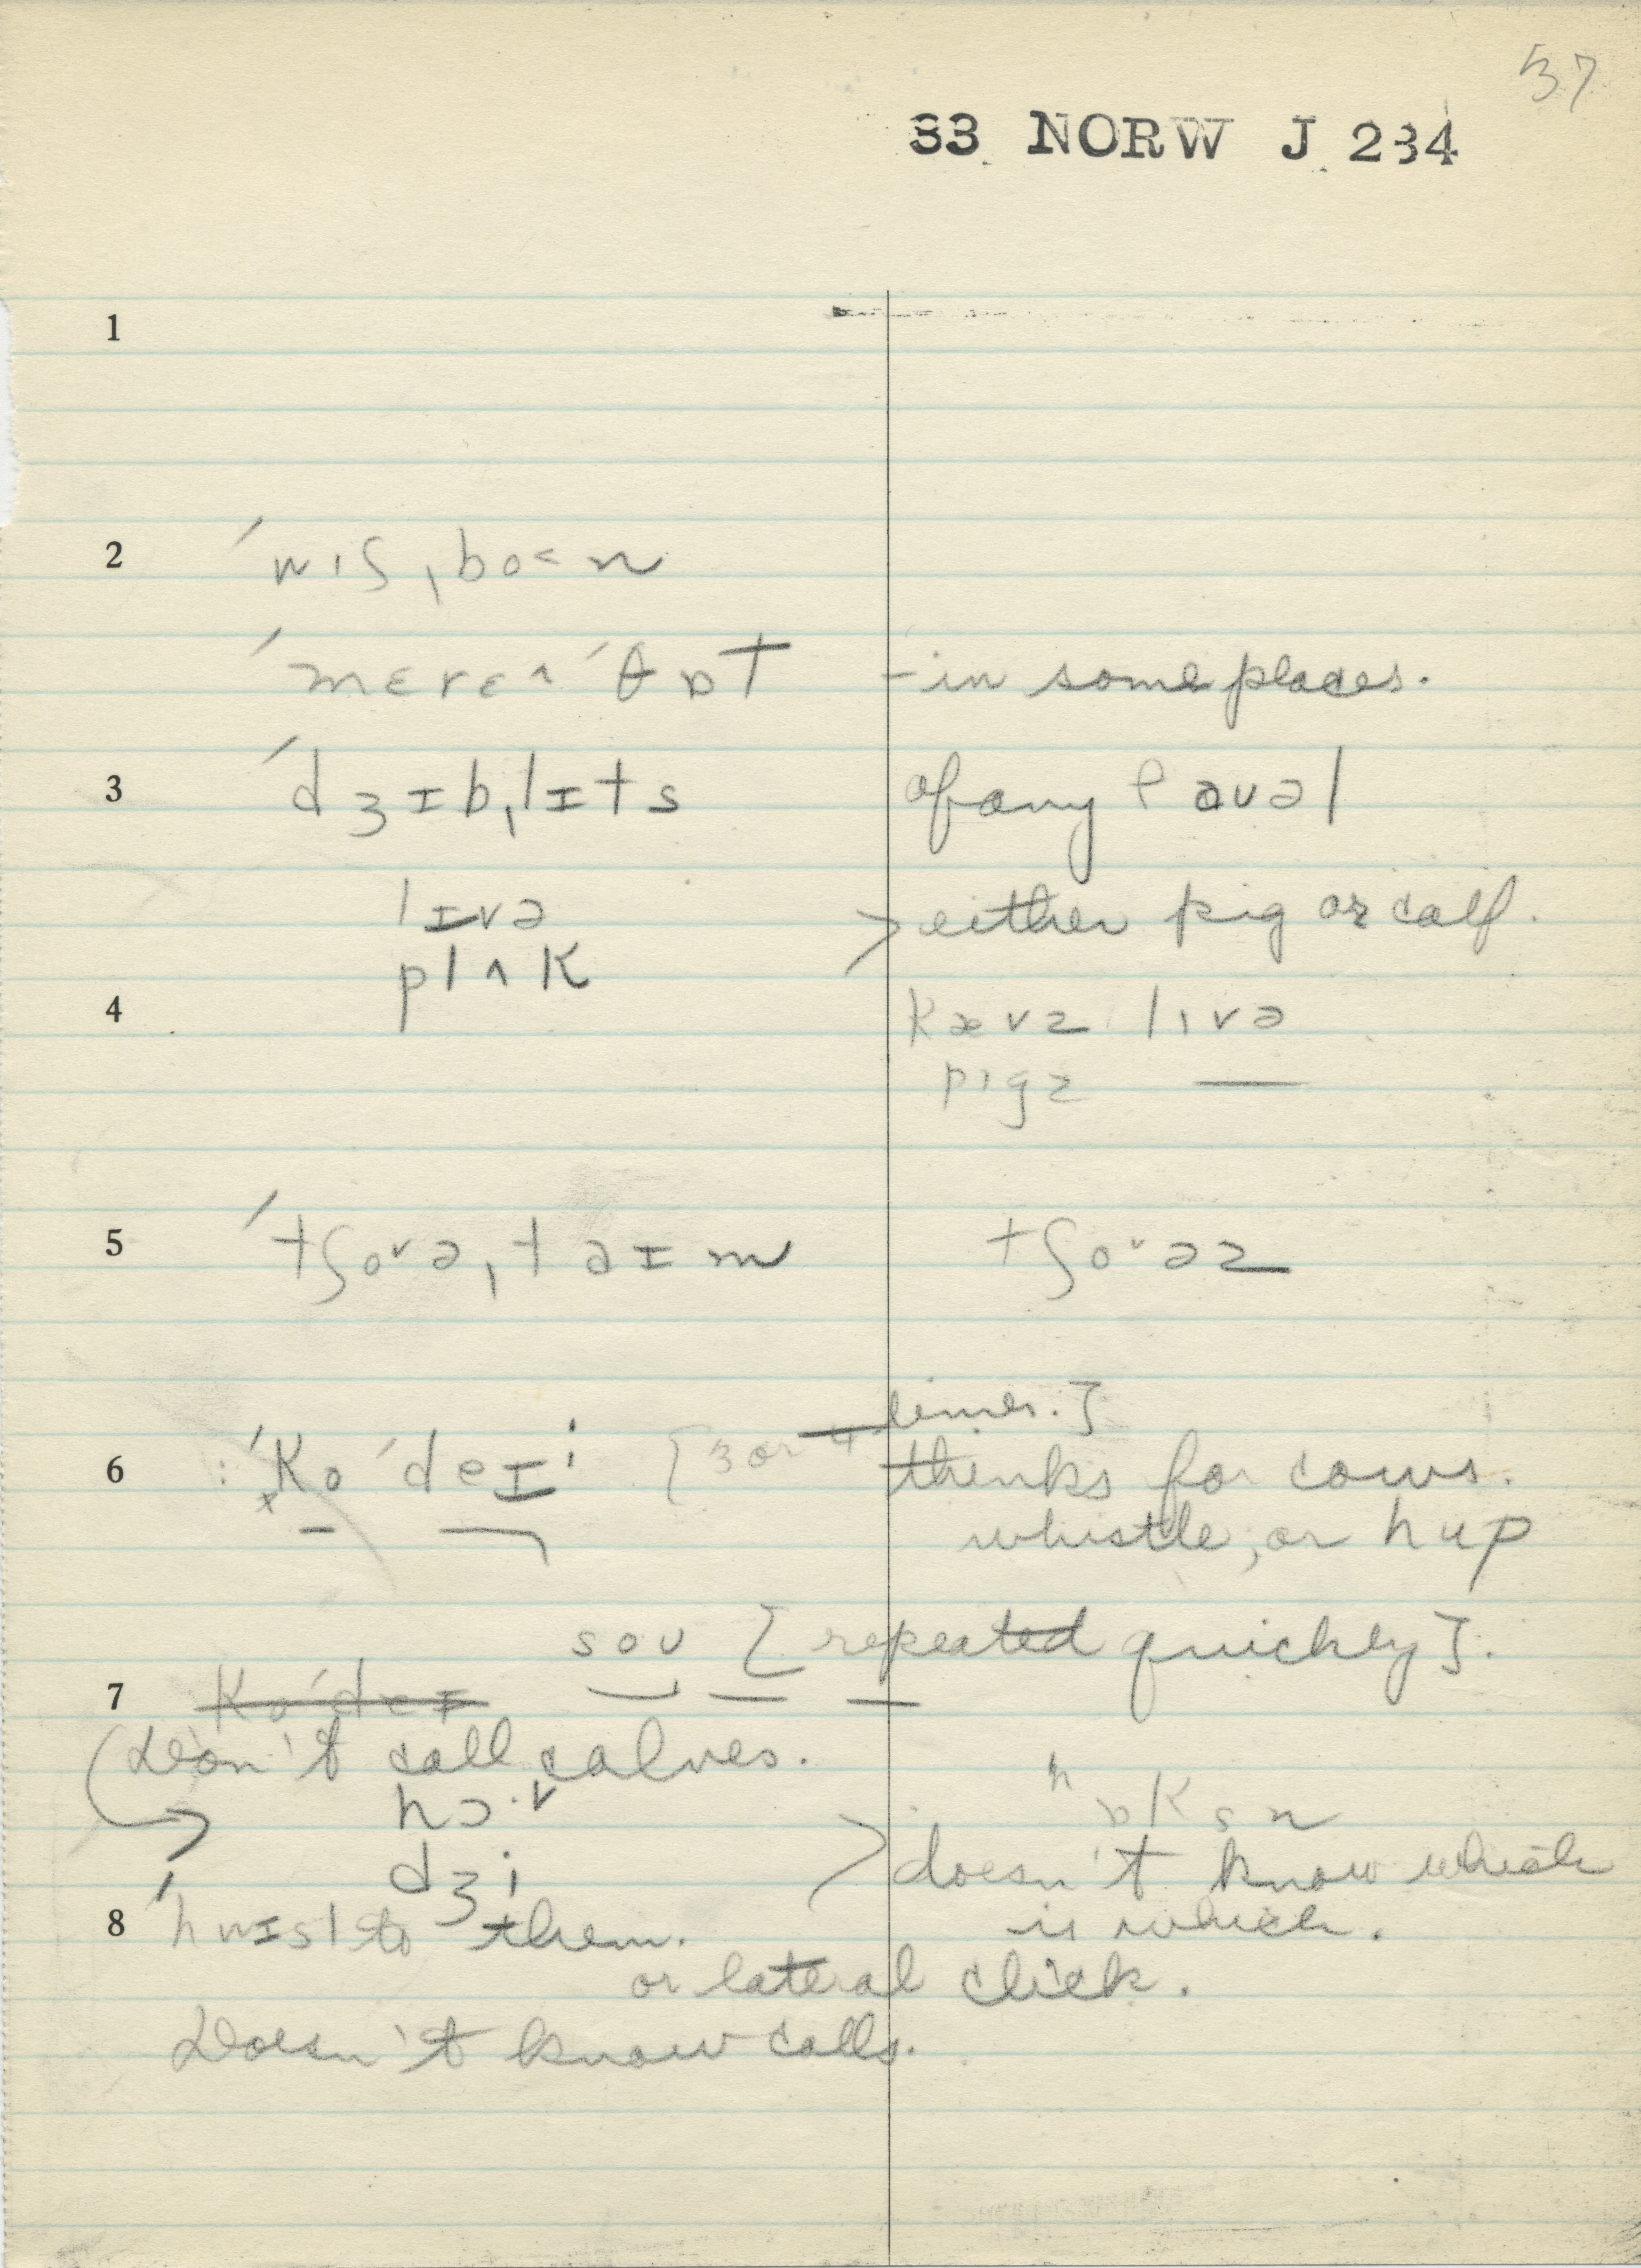 37
33 NORW J 234
1
2 ˈwɪʃˌbo<n
ˈmerɛʌ ˈθɒt - in some places.
3 ˈdʒɪbˌlɪts of any faʊəl
lɪvə > either pig or calf.
plʌk
4 kævz lɪvə
pɪgz —
5 ˈtʃoᵛəˌtaɪm tʃoᵛəz
times.]
6 : ˈkoˈdeɪ: [3 or 4 thinks for cows.
whistle, or hup
soʊ [repeated quickly].
7 koˈdeɪ
Don't call calves.
hɔ·v hɒksn
dʒi > doesn't know which
8 ˈhwɪsl to them. is which.
or lateral click.
Doesn't know calls.